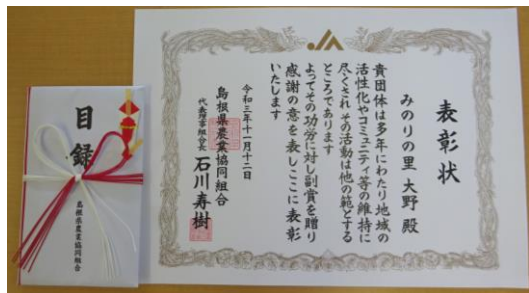 表彰状
みのりの里 大野 殿
貴団体は多年にわたり地域の
活性化やコミュニティ等の維持に
尽くされ その活動は他の範とする
ところであります
よってその功労に対し副賞を贈り
感謝の意を表しここに表彰
いたします
令和三年十一月十二日
島根県農業協同組合
代表理事組合長 石川寿樹
目録
島根県農業協同組合